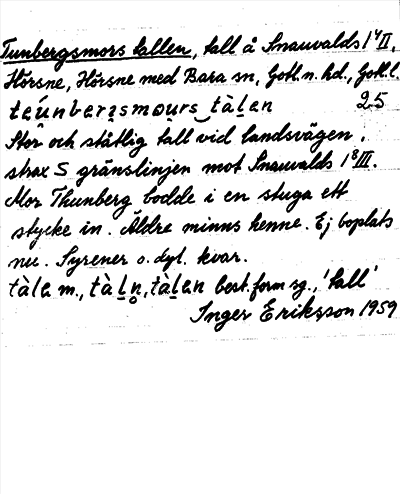 Tunbergsmors tallen, tall å Snauvalds 1⁴II,
Hörsne, Hörsne med Bara sn, Gotl. n. hd., Gotl. l.
teúnbeṛsmọurs‿tàḷen 25
Stor och ståtlig tall vid landsvägen,
strax S gränslinjen mot Snauvalds 1⁸III.
Mor Thunberg bodde i en stuga ett
stycke in. Äldre minns henne. Ej boplats
nu. Syrener o. dyl. kvar.
tàle m., tàḷn̥, tàḷen best. form sg., 'tall'
Inger Eriksson 1959